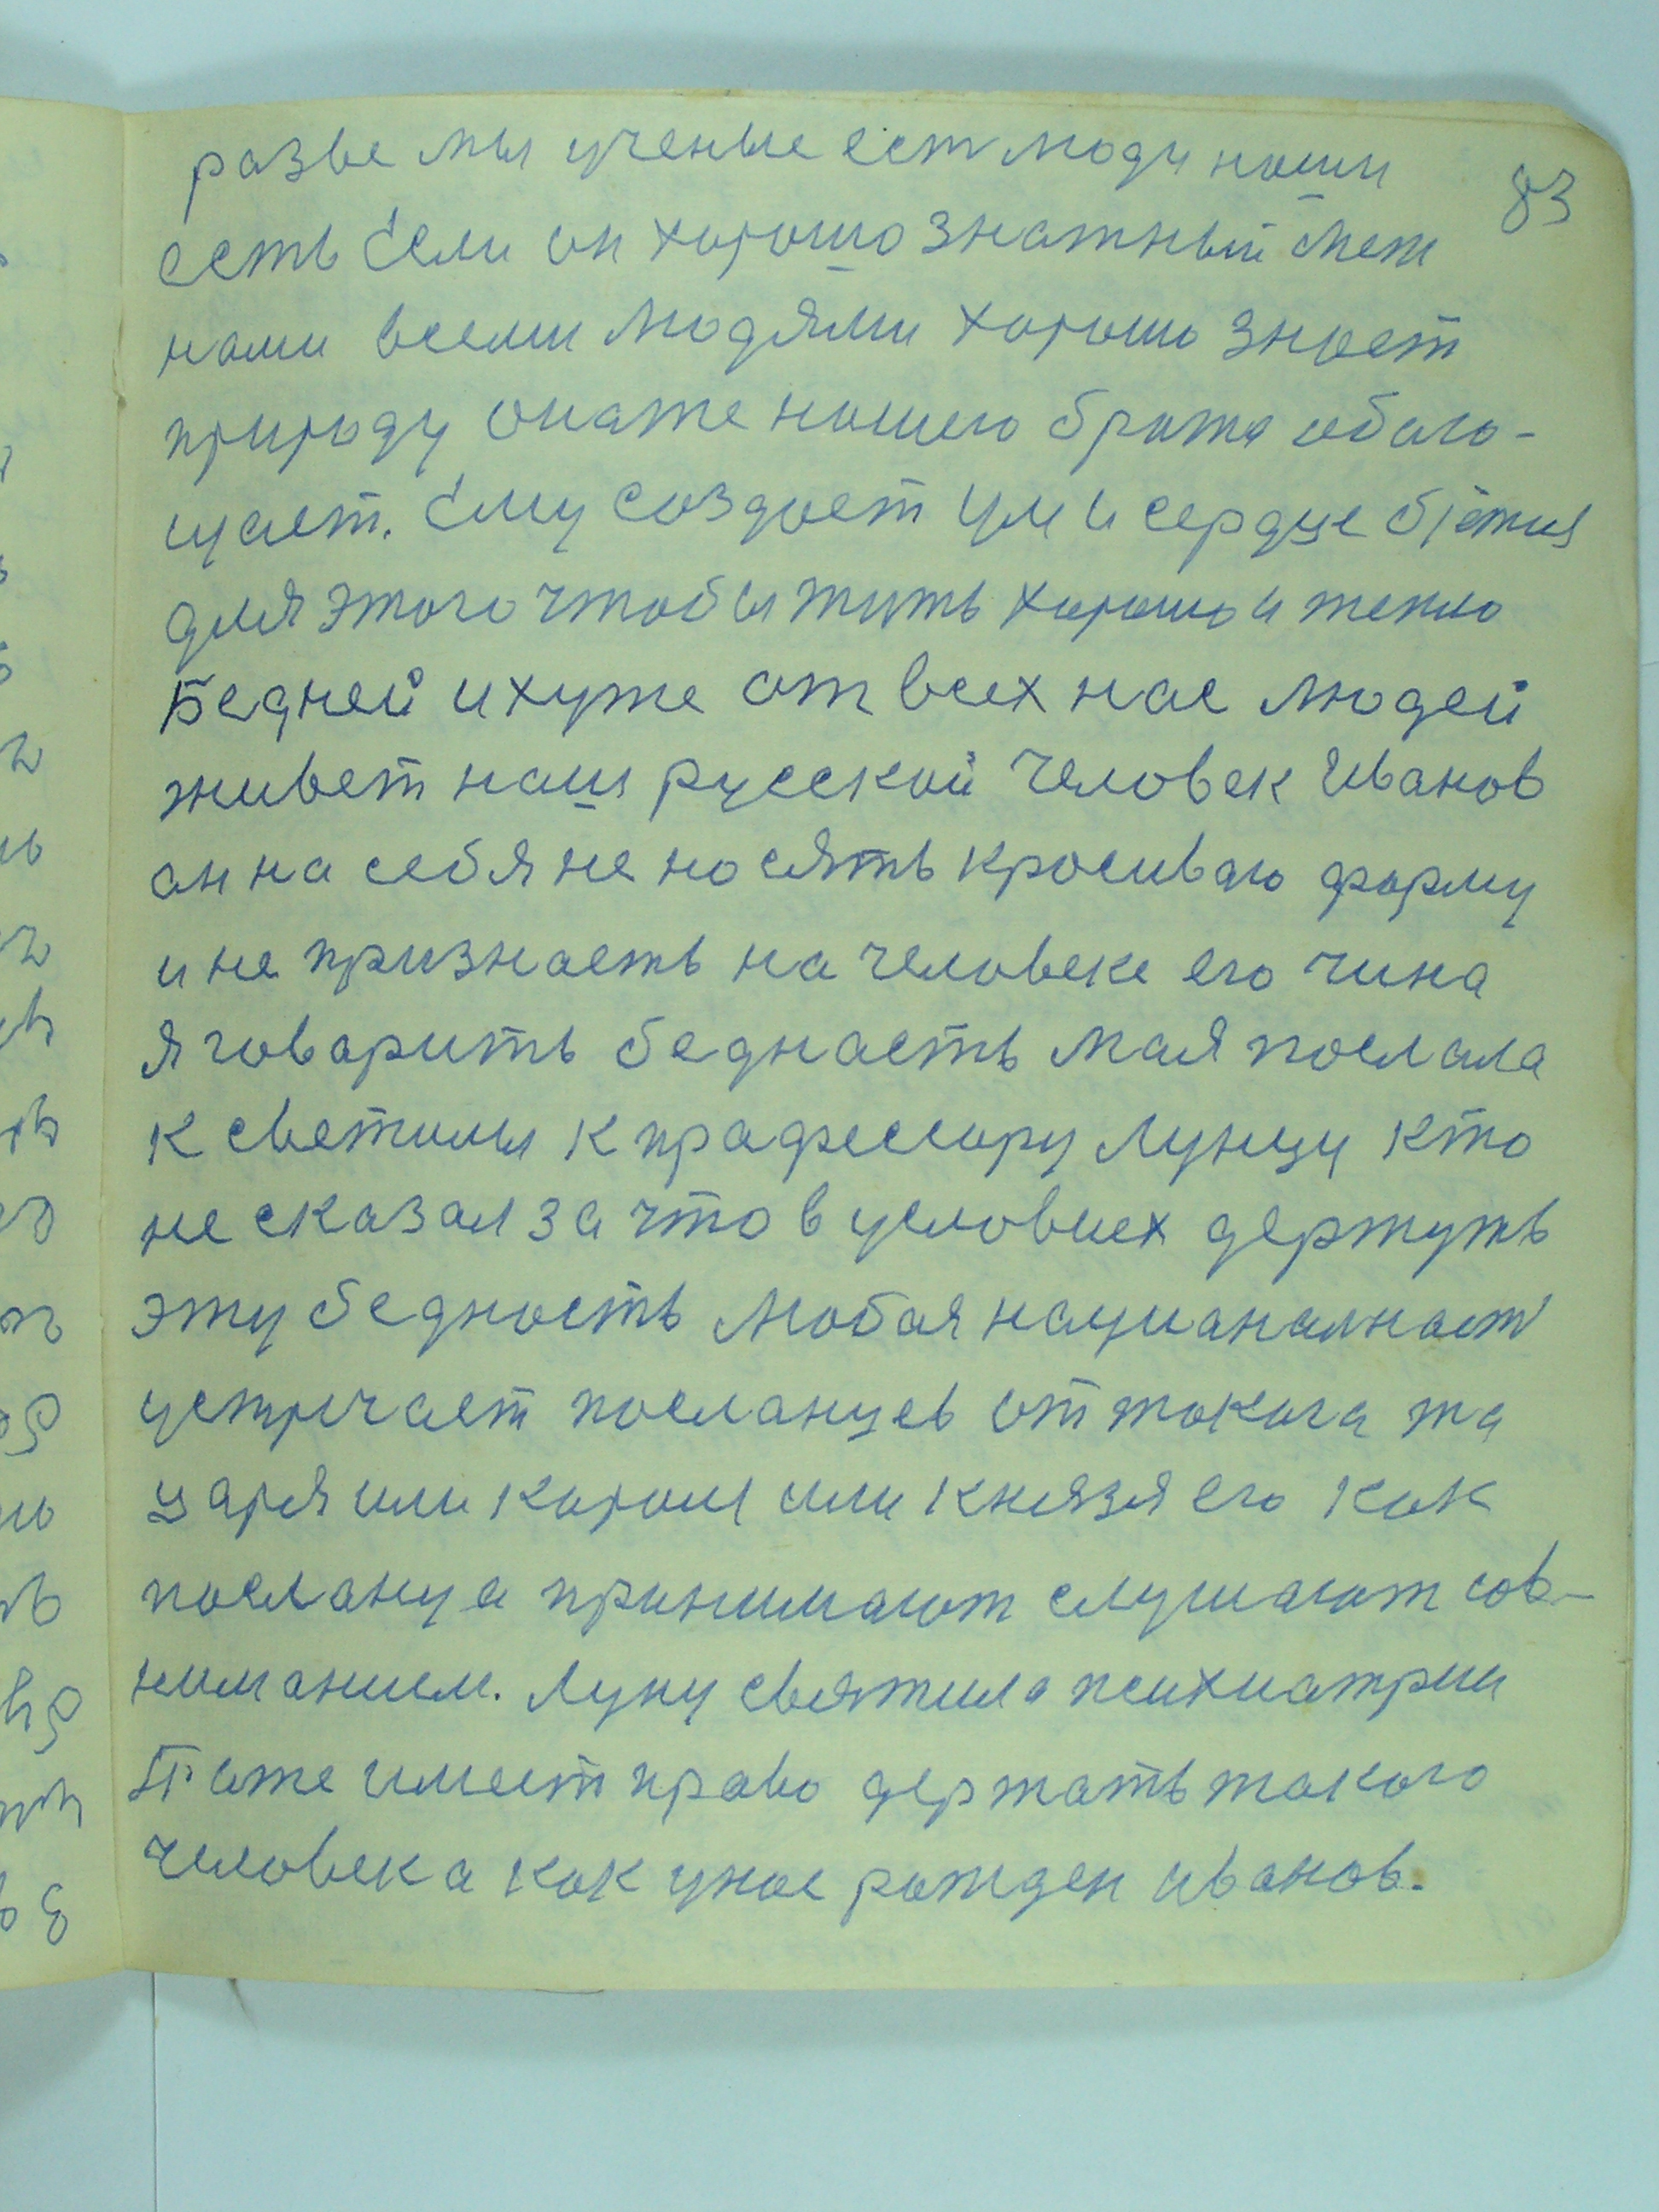 83
разве мы ученые ест люди наши
есть Если он хорошо знатный меж
нами всеми людями хорошо знает
природу онаже нашего брата обаго-
щает. Ему создает ум и сердце
для этого чтобы жить хорошо и тепло
Бедней и хуже от всех нас людей
живет наш русский человек Иванов
он на себя неносять красиваю форму
и не признаеть на человеке его чина
я говорить беднасть мая послала
к светилы к прафессору Лунцу кто
не сказал за что в условиех держуть
эту бедность любая нацианалнаст
устричает посланцев от такога жа
царя или короля или князя его как
посланца принимают слушают сов-
ниманием. Лунц святила психиатрии
Тоже имеет право держать такого
человека как унас рожден иванов.